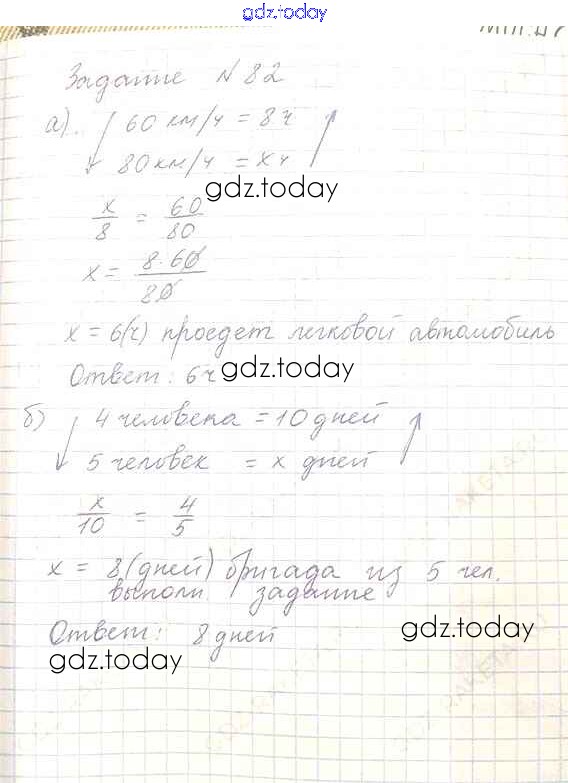 gdz.today
Задание N 82
а). 60 км/ч = 8 ч
80 км/ч = x ч
gdz.today
x/8 = 60/80
x = 8·60/80
x = 6(ч) проедет легковой автомобиль
Ответ: 6ч
gdz.today
б) 4 человека = 10 дней
5 человек = x дней
x/10 = 4/5
x = 8 (дней) бригада из 5 чел.
выполн. задание
Ответ: 8 дней
gdz.today
gdz.today